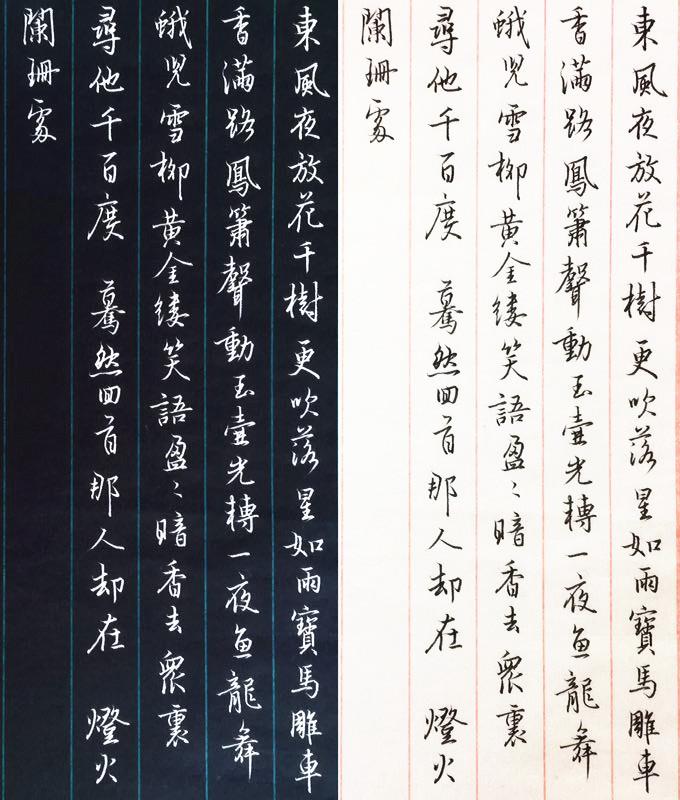 東風夜放花千樹更吹落星如雨寶馬雕車
香滿路鳳簫聲動玉壺光轉一夜魚龍舞
蛾兒雪柳黃金縷笑語盈〻暗香去眾裏
尋他千百度 驀然回首那人却在 燈火
闌珊處
東風夜放花千樹更吹落星如雨寶馬雕車
香滿路鳳簫聲動玉壺光轉一夜魚龍舞
蛾兒雪柳黃金縷笑語盈〻暗香去眾裏
尋他千百度 驀然回首那人却在 燈火
闌珊處